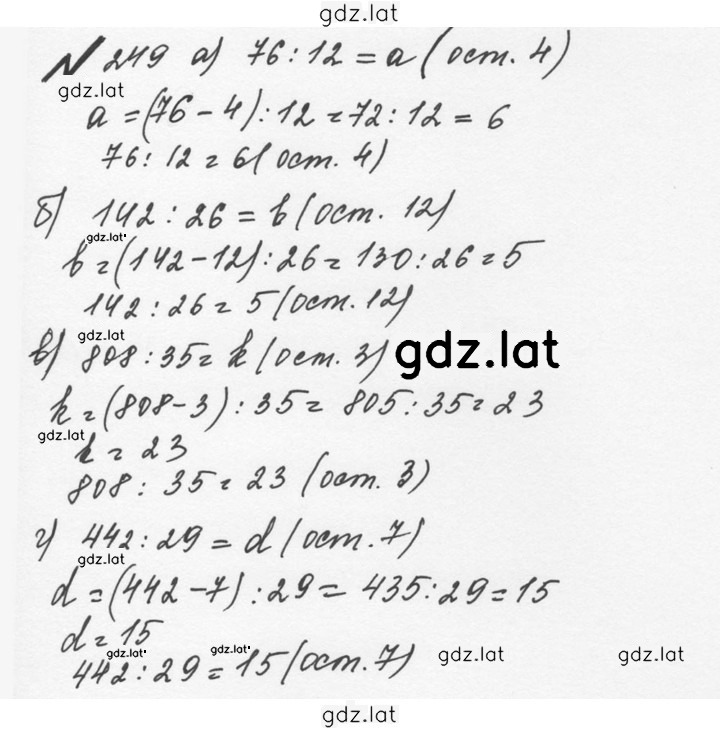 gdz.lat
N 249 а) 76 : 12 = a (ост. 4)
gdz.lat
a = (76 - 4) : 12 = 72 : 12 = 6
76 : 12 = 6 (ост. 4)
б) 142 : 26 = b (ост. 12)
gdz.lat
b = (142 - 12) : 26 = 130 : 26 = 5
142 : 26 = 5 (ост. 12)
gdz.lat
в) 808 : 35 = k (ост. 3) gdz.lat
k = (808 - 3) : 35 = 805 : 35 = 23
gdz.lat
k = 23
808 : 35 = 23 (ост. 3)
г) 442 : 29 = d (ост. 7)
gdz.lat
d = (442 - 7) : 29 = 435 : 29 = 15
d = 15
gdz.lat gdz.lat gdz.lat gdz.lat
442 : 29 = 15 (ост. 7)
gdz.lat